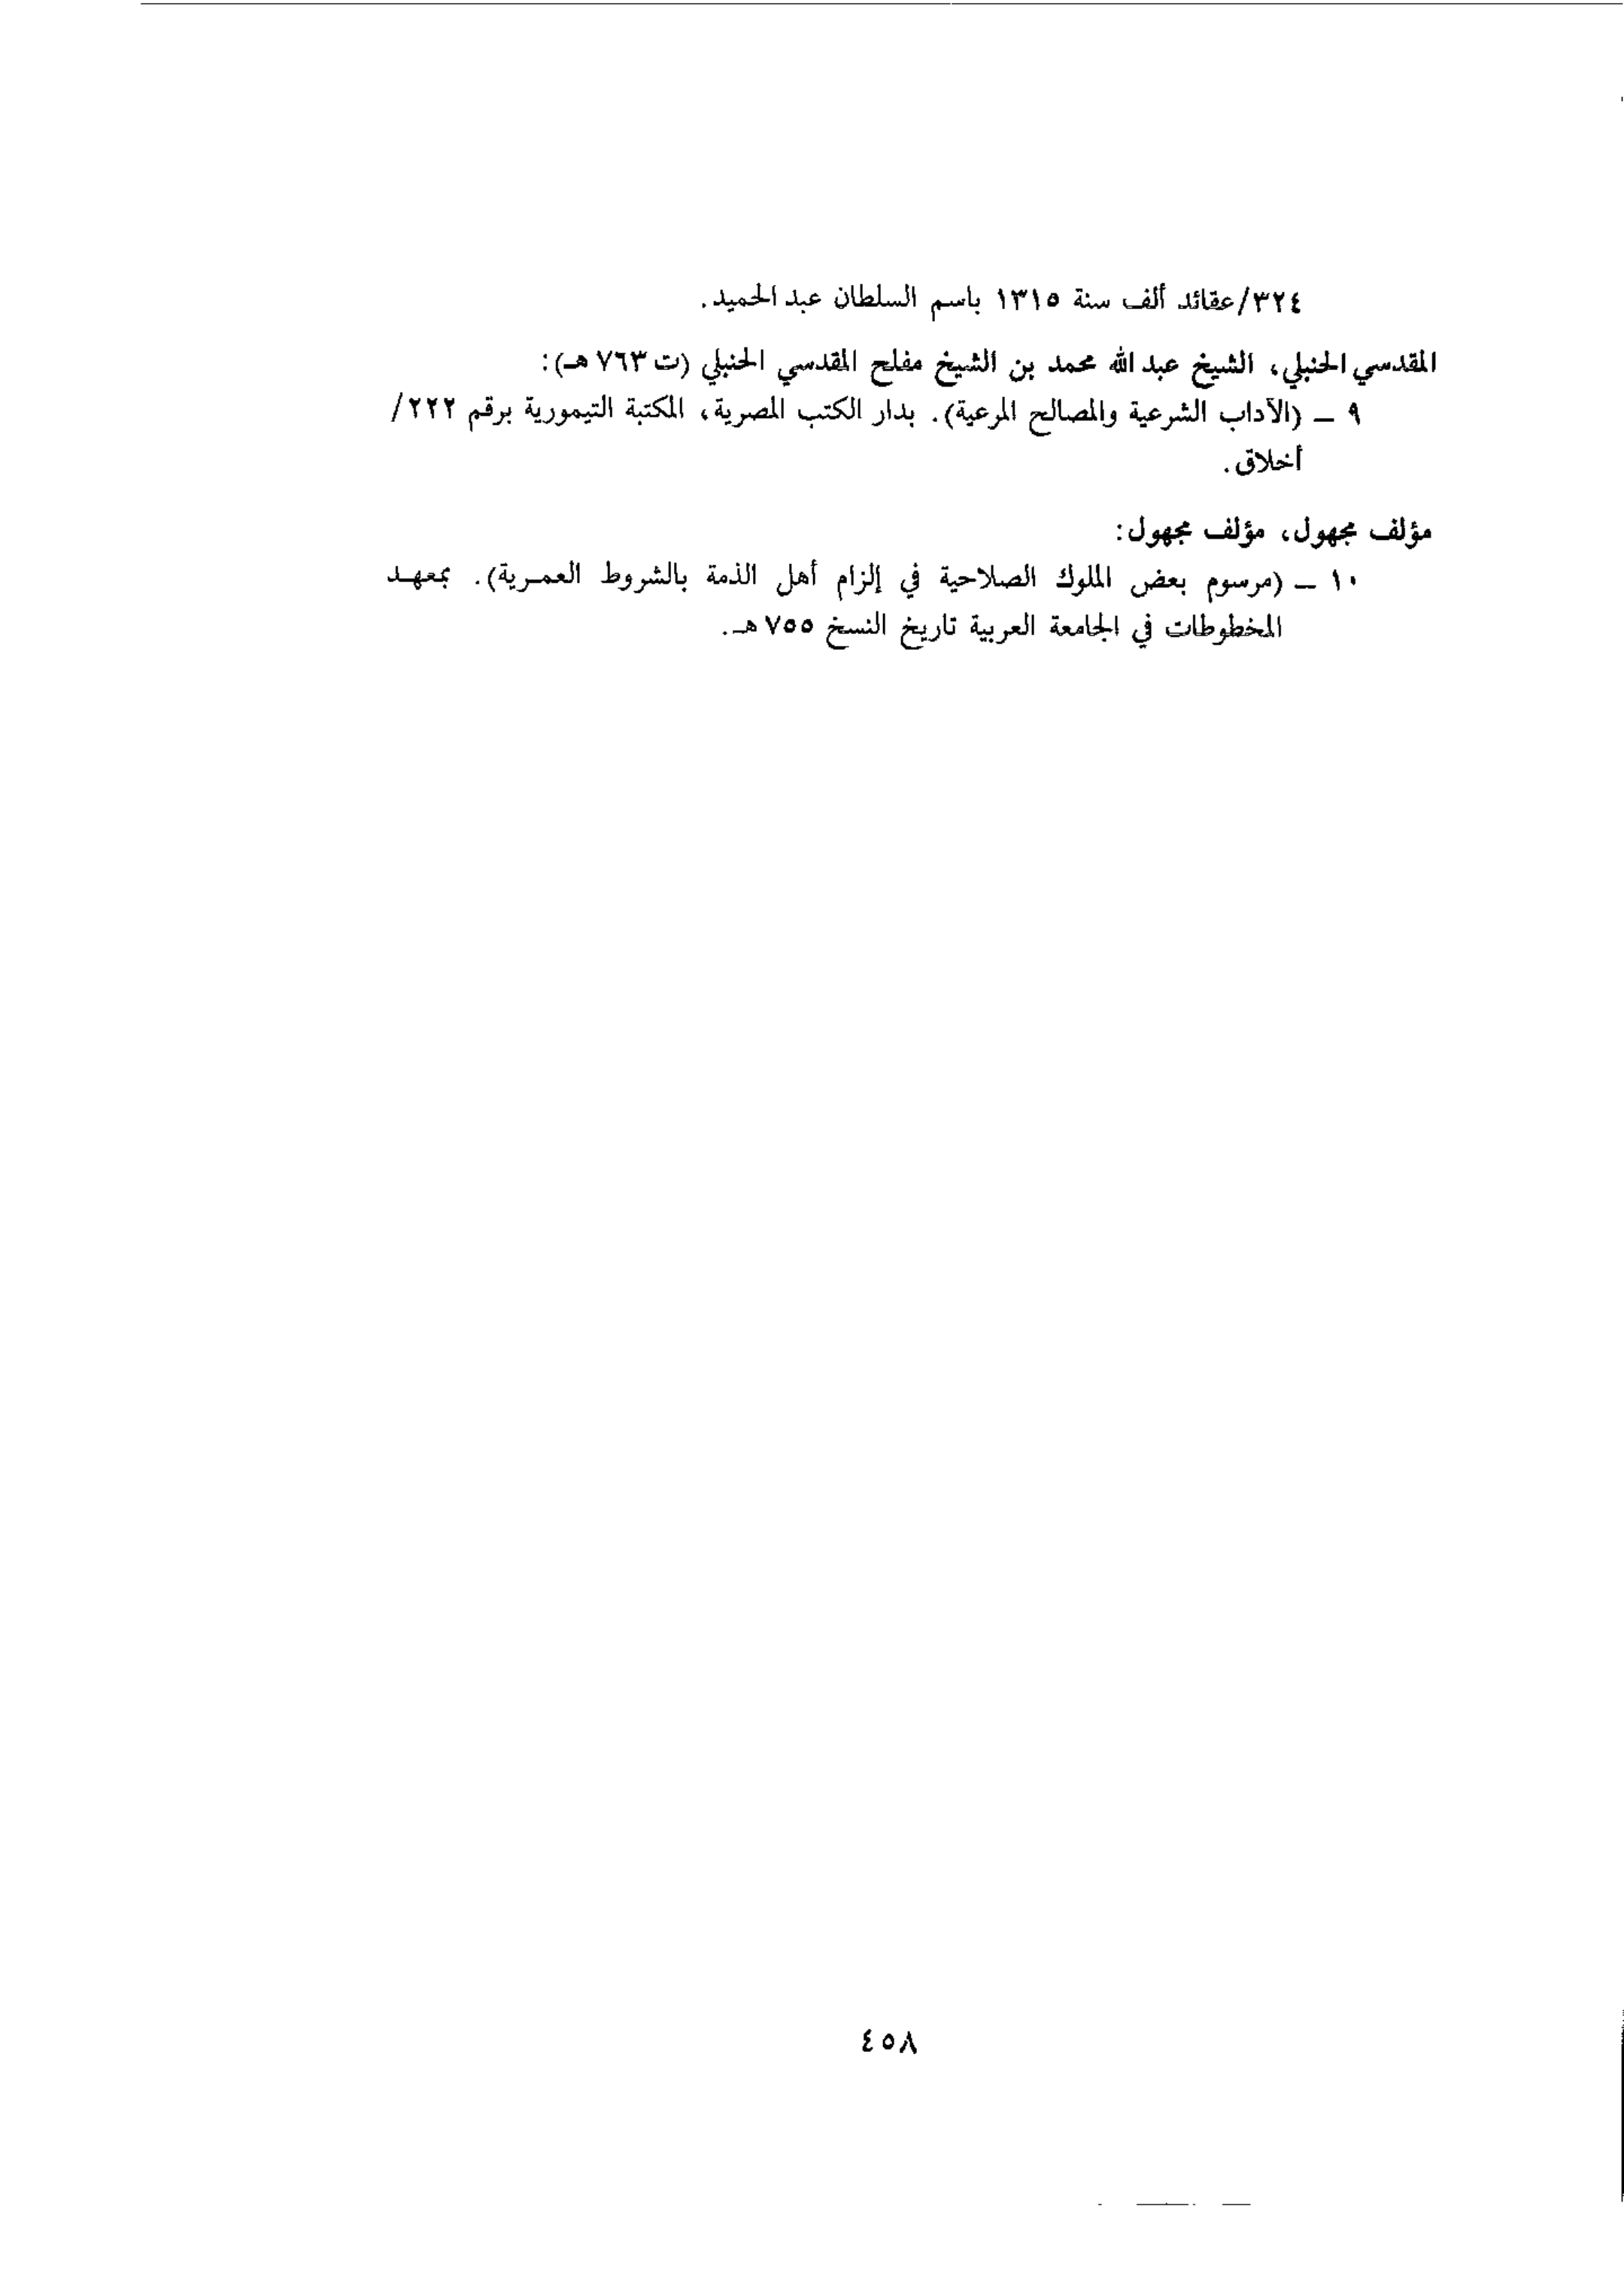 ٣٢٤/عقائد ألف سنة ١٣١٥ باسم السلطان عبد الحميد.
المقدسي الحنبلي، الشيخ عبد الله محمد بن الشيخ مفلح المقدسي الحنبلي (ت ٧٦٣ هـ):
٩ – (الآداب الشرعية والمصالح المرعية). بدار الكتب المصرية، المكتبة التيمورية برقم ٢٢٢/
أخلاق.
مؤلف مجهول، مؤلف مجهول:
١٠ – (مرسوم بعض الملوك الصلاحية في إلزام أهل الذمة بالشروط العمرية). بمعهد
المخطوطات في الجامعة العربية تاريخ النسخ ٧٥٥ هـ.
٤٥٨